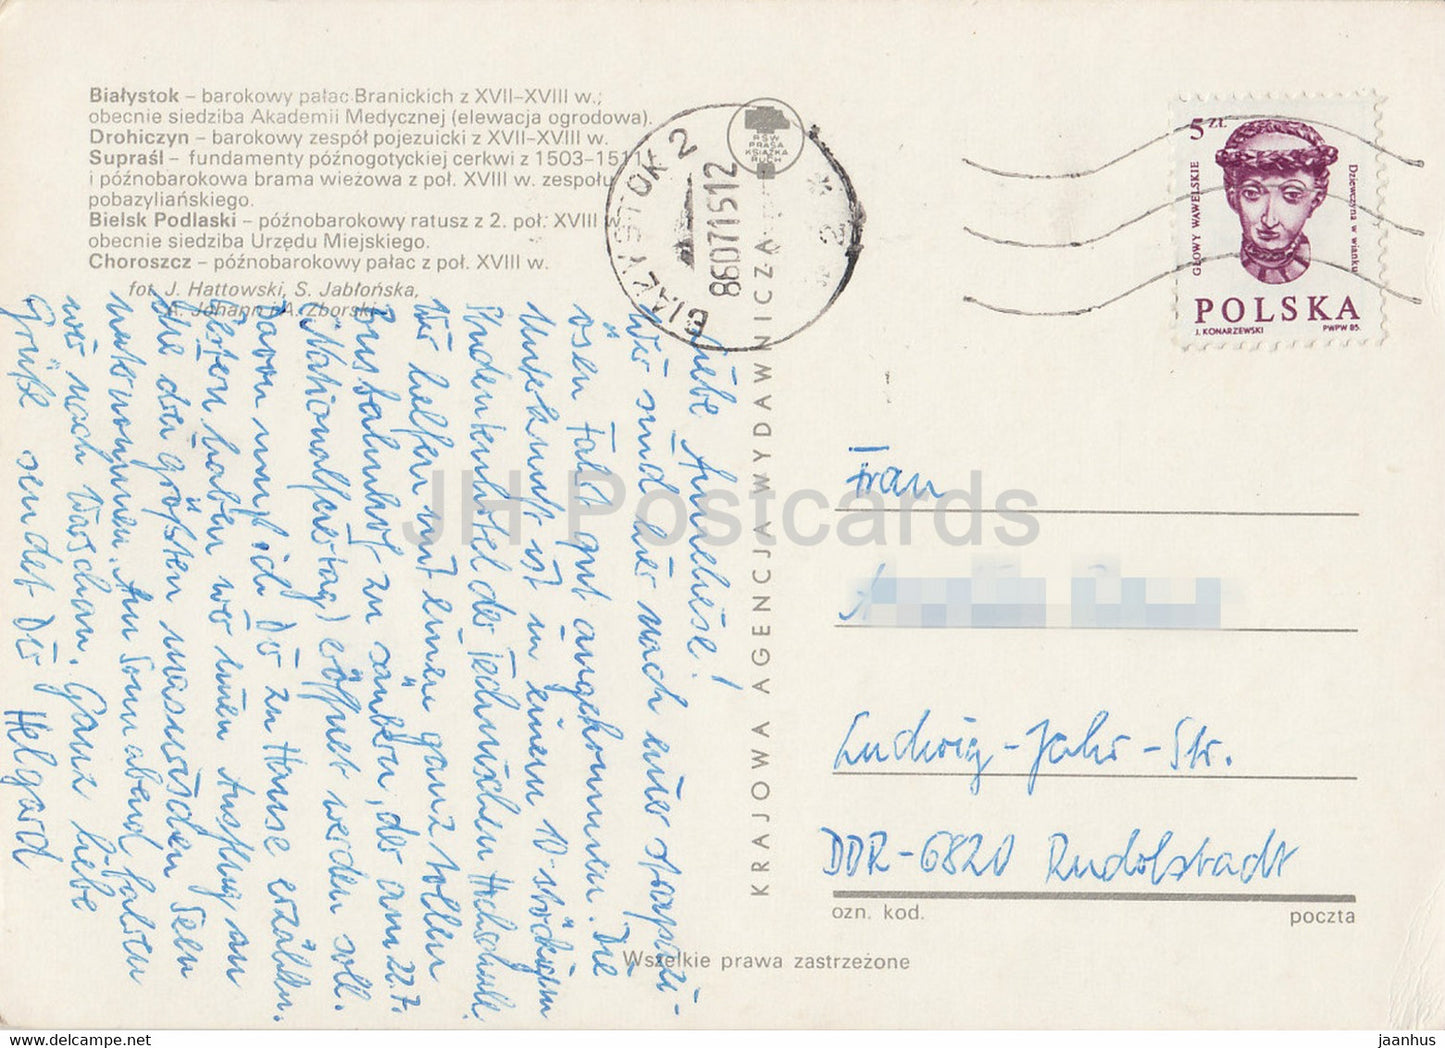 Białystok – barokowy pałac Branickich z XVII–XVIII w.;
obecnie siedziba Akademii Medycznej (elewacja ogrodowa).
Drohiczyn – barokowy zespół pojezuicki z XVII–XVIII w.
Supraśl – fundamenty późnogotyckiej cerkwi z 1503–1511
i późnobarokowa brama wieżowa z poł. XVIII w. zespołu
pobazyliańskiego.
Bielsk Podlaski – późnobarokowy ratusz z 2. poł. XVIII
obecnie siedziba Urzędu Miejskiego.
Choroszcz – późnobarokowy pałac z poł. XVIII w.
fot. J. Hattowski, S. Jabłońska,
A. Johann i A. Zborski
RSW
PRASA
KSIĄŻKA
RUCH
BIAŁYSTOK 2
86071512
5 ZŁ
GŁOWY WAWELSKIE
Dziewczyna w wianku
POLSKA
J. KONARZEWSKI PWPW 85.
KRAJOWA AGENCJA WYDAWNICZA
Liebe Anneliese!
Wir sind hier nach einer strapazi-
ösen Fahrt gut angekommen. Die
Unterkunft ist in einem 10-stöckigen
Studentenhotel der Technischen Hochschule.
Wir helfen mit einen ganz tollen
Busbahnhof zu säubern, der am 22.7.
(Nationalfeiertag) eröffnet werden soll.
Davon muß ich Dir zu Hause erzählen.
Gestern haben wir einen Ausflug an
die drei größten masurischen Seen
unternommen. Am Sonnabend fahren
wir nach Warschau. Ganz liebe
Grüße sendet Dir Helgard
Frau
Ludwig-Jahr-Str.
DDR-6820 Rudolstadt
ozn. kod. poczta
Wszelkie prawa zastrzeżone
JH Postcards
https://www.hipstamp.com jaanhus